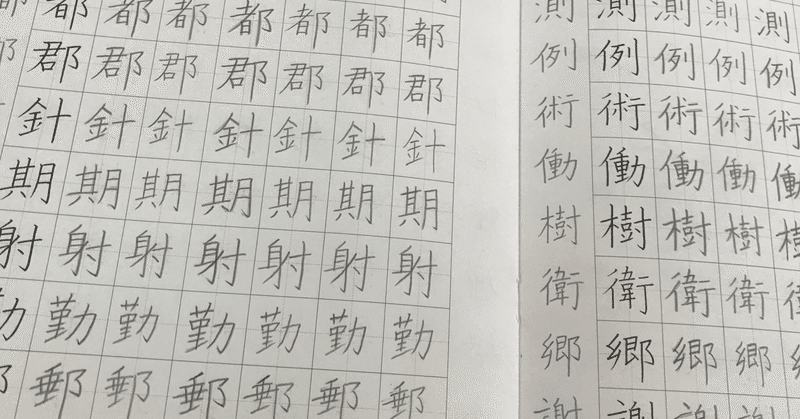 都都都都都都都
郡郡郡郡郡郡郡
針針針針針針針
期期期期期期期
射射射射射射射
勤勤勤勤勤勤
郵郵郵郵郵郵
測測測測測
例例例例例
術術術術術
働働働働働
樹樹樹樹
衛衛衛衛
郷郷郷郷
謝謝謝謝